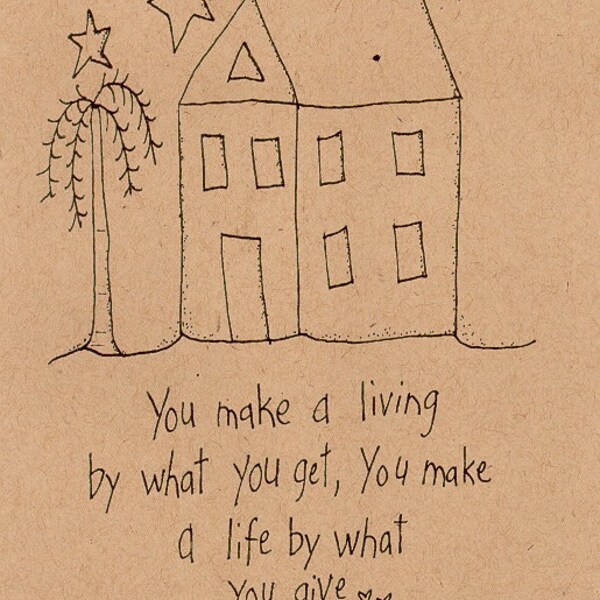 You make a living
by what you get, You make
a life by what
you give